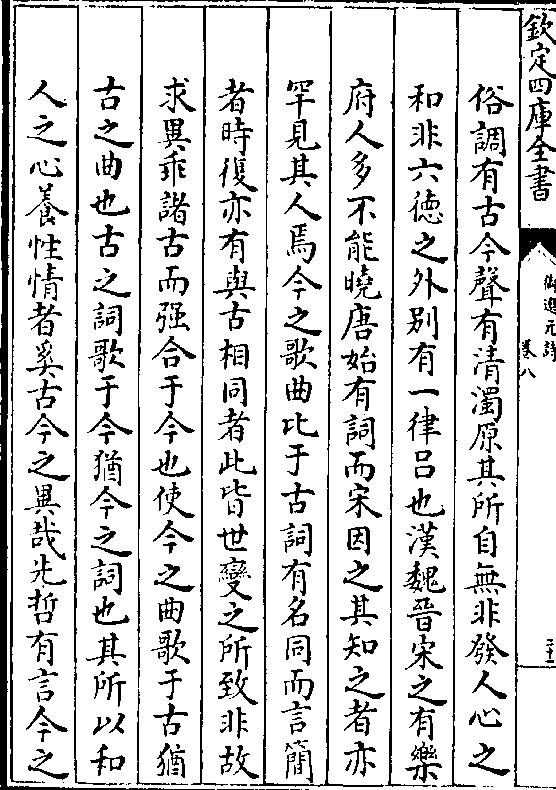 欽定四庫全書
御選元詩
卷八
俗調有古今聲有清濁原其所自無非發人心之
和非六徳之外别有一律吕也漢魏晉宋之有樂
府人多不能曉唐始有詞而宋因之其知之者亦
罕見其人焉今之歌曲比于古詞有名同而言簡
者時復亦有與古相同者此皆世變之所致非故
求異乖諸古而强合于今也使今之曲歌于古猶
古之曲也古之詞歌于今猶今之詞也其所以和
人之心養性情者奚古今之異哉先哲有言今之